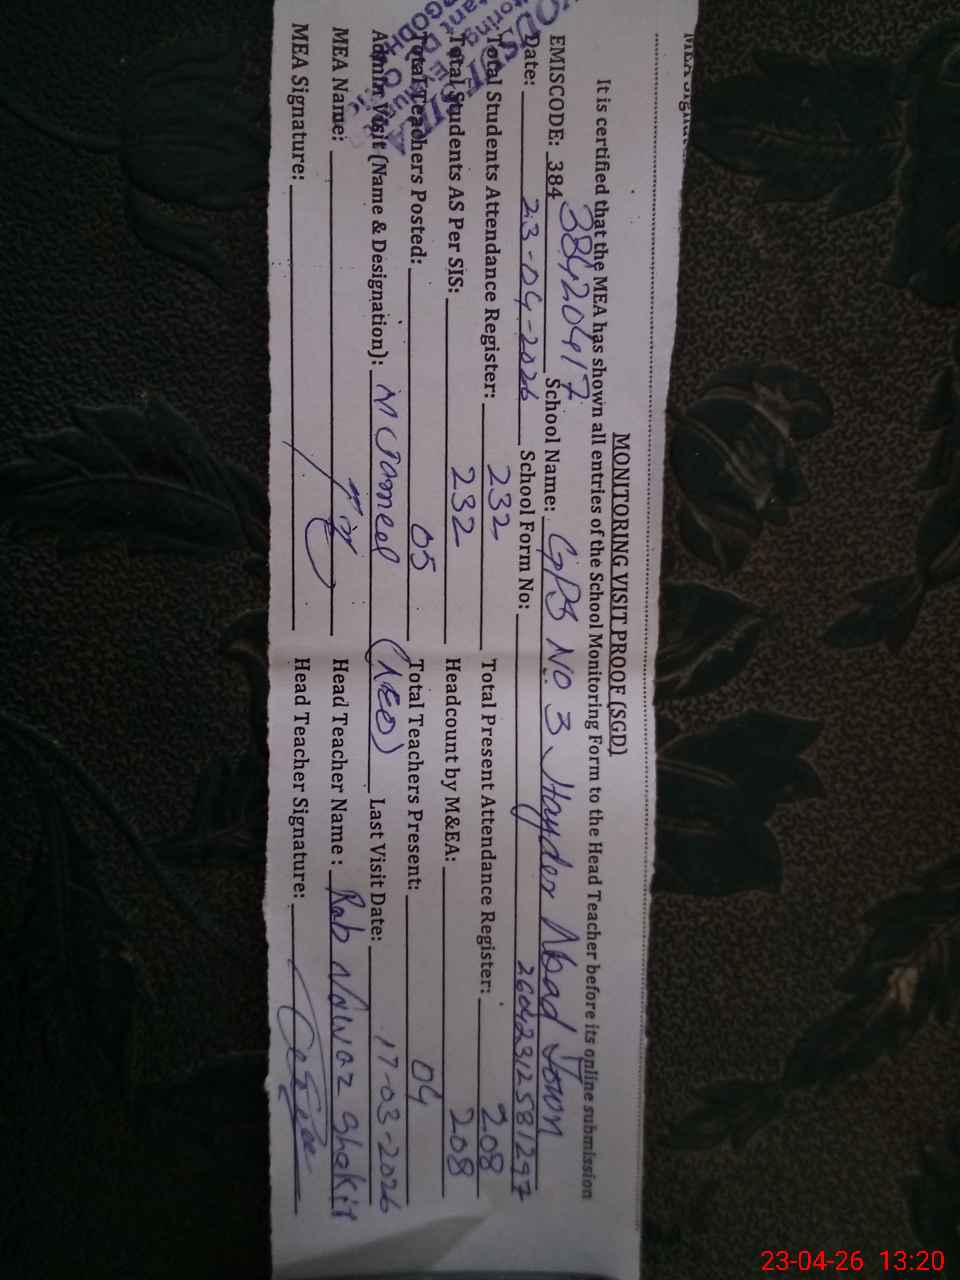 MONITORING VISIT PROOF (SGD)
It is certified that the MEA has shown all entries of the School Monitoring Form to the Head Teacher before its online submission
EMISCODE: 384 38420417 School Name: GPS No. 3 Hayder Abad Town
Date: 23-04-2026 School Form No: 26042312581297
Total Students Attendance Register: 232 Total Present Attendance Register: 208
Total Students AS Per SIS: 232 Headcount by M&EA: 208
Total Teachers Posted: 05 Total Teachers Present: 04
Admin Visit (Name & Designation): M Jameel (AEO) Last Visit Date: 17-03-2026
MEA Name: Head Teacher Name : Rab Nawaz Shakir
MEA Signature: Head Teacher Signature:
23-04-26 13:20